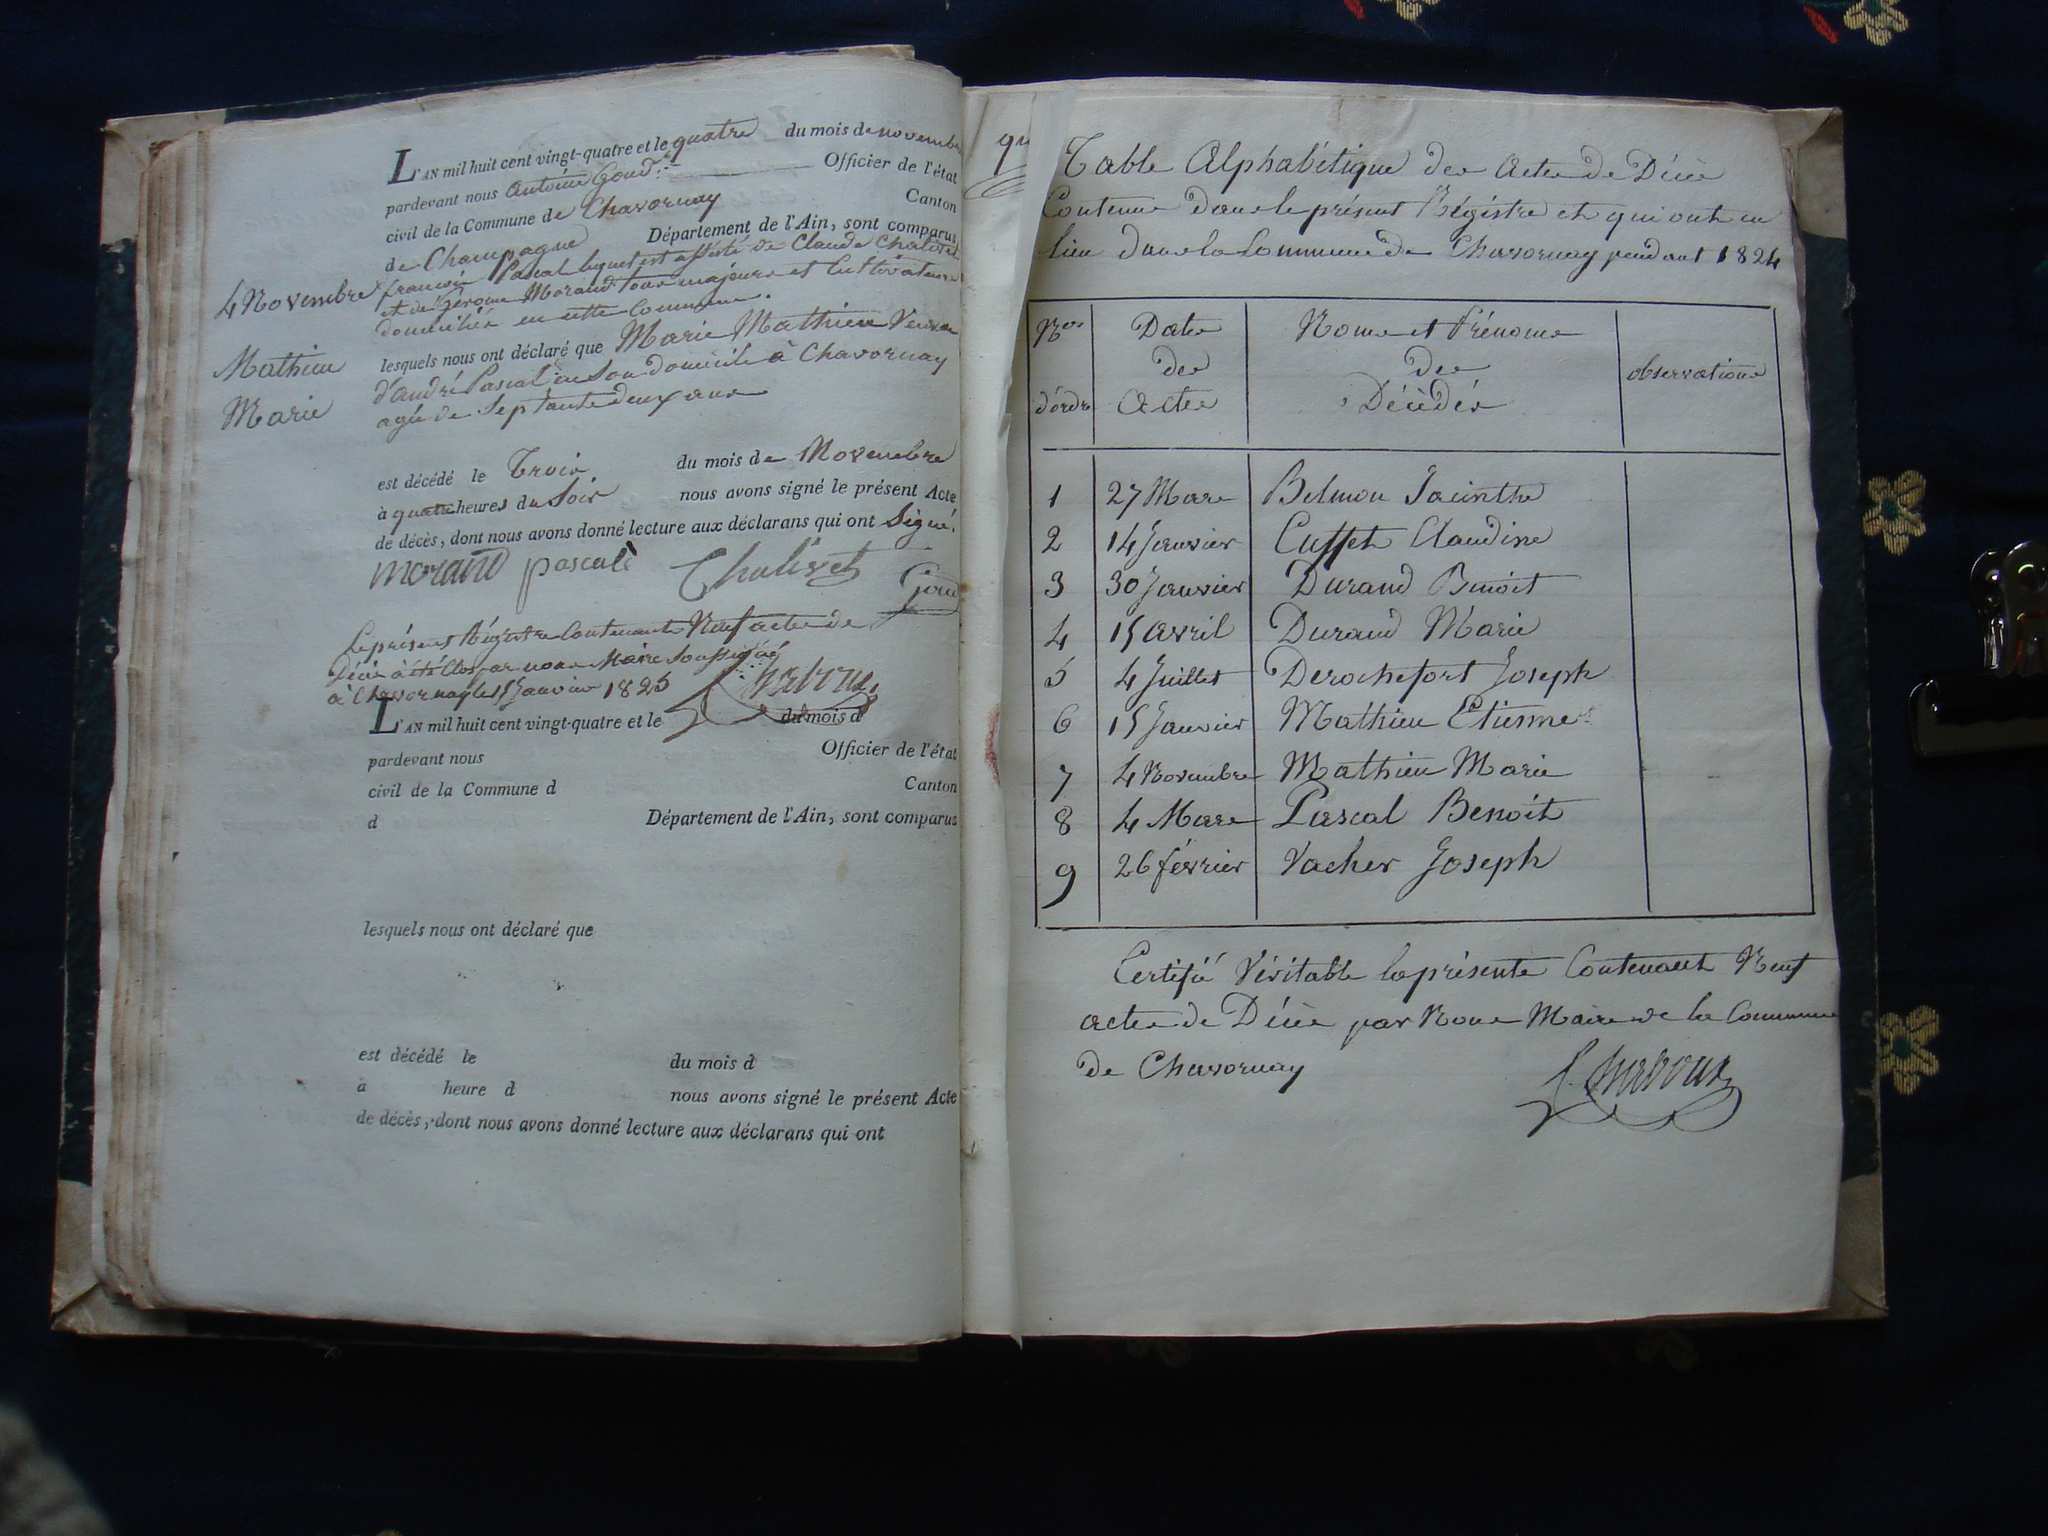 L'AN mil huit cent vingt-quatre et le quatre du mois de novembre
pardevant nous Antoine Goud Officier de l'état
civil de la Commune de Chavornay Canton
de Champagne Département de l'Ain, sont comparus
françois Pascal lequel est assisté de Claude Chalivet
et de Gérome Morand tous majeurs et Cultivateurs
domiciliés en cette Commune.
4 Novembre
Mathieu
Marie
lesquels nous ont déclaré que Marie Mathieu Veuve
d'andré Pascal en Son domicile à Chavornay
agée de Septante deux ans
est décédé le Trois du mois de Novembre
à quatre heures du Soir nous avons signé le présent Acte
de décès, dont nous avons donné lecture aux déclarans qui ont Signé.
morand pascal Chalivet
Goud
Le présent Régistre Contenant Neuf actes de
Décès à été Clos par nous Maire Soussigné
à Chavornay le 1 Janvier 1825
L'AN mil huit cent vingt-quatre et le du mois d
pardevant nous Officier de l'état
civil de la Commune d Canton
d Département de l'Ain, sont comparus
lesquels nous ont déclaré que
est décédé le du mois d
à heure d nous avons signé le présent Acte
de décès, dont nous avons donné lecture aux déclarans qui ont
Table Alphabétique des Actes de Décès
Contenus dans le présent Régistre et qui ont eu
lieu dans la Commune de Chavornay pendant 1824
Nos d'ordre Date des Actes Noms et Prénoms des Décédés observations
1 27 Mars Belmon Jacinthe
2 14 Janvier Cuffet Claudine
3 30 Janvier Durand Benoit
4 15 avril Durand Marie
5 4 Juillet Derochefort Joseph
6 15 Janvier Mathieu Etienne
7 4 Novembre Mathieu Marie
8 4 Mars Pascal Benoit
9 26 février Vacher Joseph
Certifié Véritable la présente Contenant Neuf
actes de Décès par Nous Maire de la Commune
de Chavornay